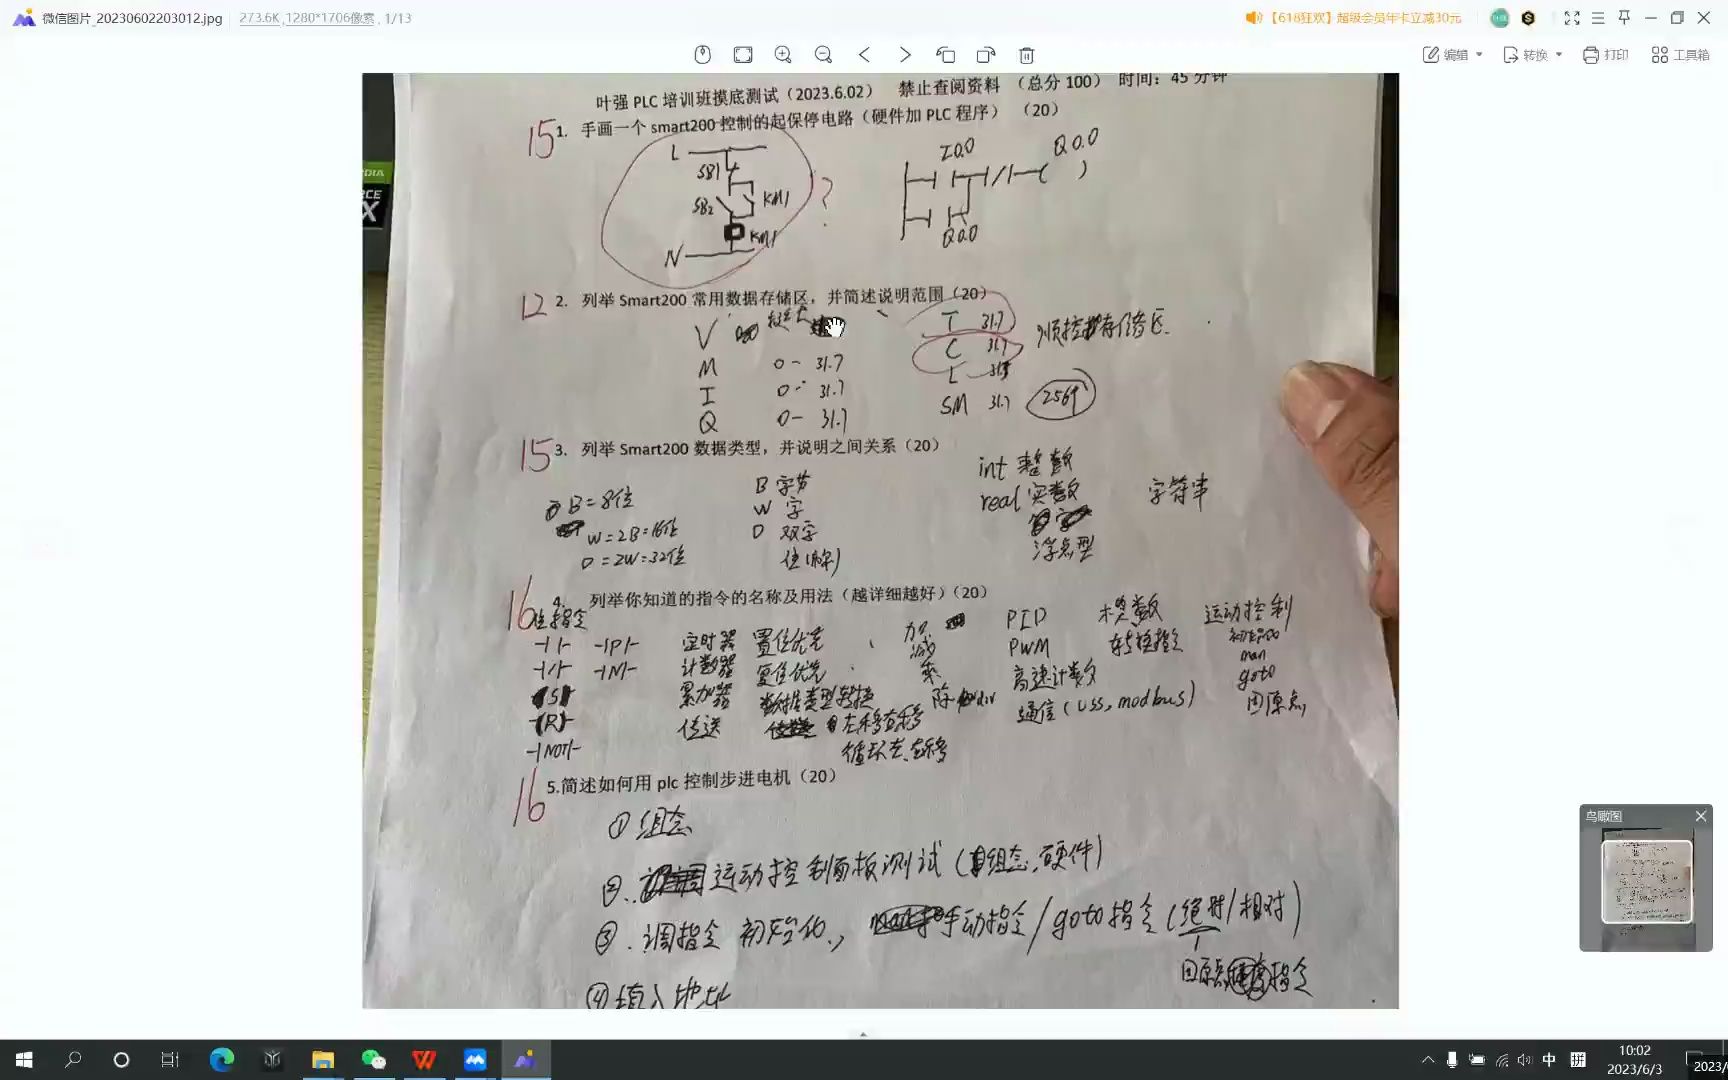 微信图片_20230602203012.jpg 273.6K, 1280*1706像素, 1/13
【618狂欢】超级会员年卡立减30元
编辑 转换 打印 工具箱
叶强 PLC 培训班摸底测试（2023.6.02） 禁止查阅资料 （总分 100） 时间：45 分钟
15 1. 手画一个 smart200 控制的起保停电路（硬件加 PLC 程序） （20）
L
SB1
SB2 KM1
KM1
N
?
I0.0 Q0.0
Q0.0
12 2. 列举 Smart200 常用数据存储区，并简述说明范围（20）
V
M 0- 31.7
I 0- 31.7
Q 0- 31.7
T 31.7
C 31.7
L
SM 31.7
顺控 存储区
15 3. 列举 Smart200 数据类型，并说明之间关系（20）
B=8位
W=2B=16位
D=2W=32位
B 字节
W 字
D 双字
int 整数
real 实数
浮点型
字符串
16 4. 列举你知道的指令的名称及用法（越详细越好）（20）
位指令
P N
S
R
NOT
定时器 置位优先
计数器 复位优先
累加器 数据类型转换
传送 左移右移
循环左、右移
加
减
乘
除 div
PID
PWM 转换指令
高速计数
通信（USS，modbus）
运动控制
初始化
man
goto
回原点
16 5.简述如何用 plc 控制步进电机（20）
① 组态
②. 运动控制面板测试（组态，硬件）
③. 调指令 初始化， 手动指令/goto指令（绝对/相对）
回原点 指令
④ 输入地址
鸟瞰图
中
10:02
2023/6/3